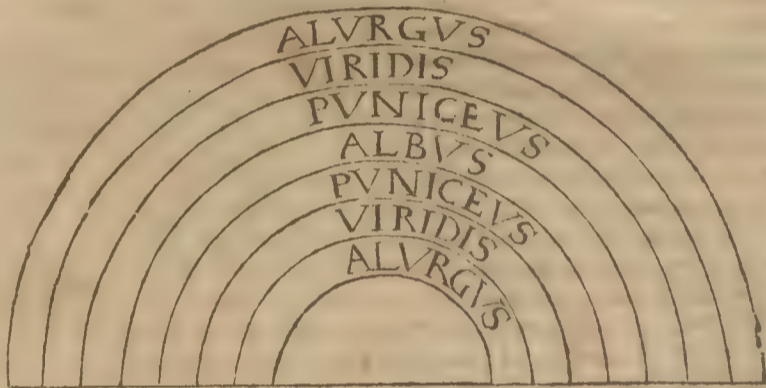 ALVRGVS
VIRIDIS
PVNICEVS
ALBVS
PVNICEVS
VIRIDIS
ALVRGVS